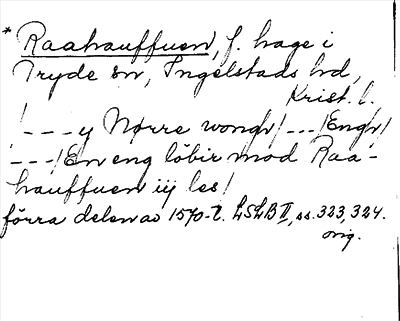 * Raahauffuen, f. hage i
Tryde sn, Ingelstads hd,
Krist. l.
! --- y Nørre wongh/ --- /Engh/
---/ En eng löbir mod Raa-
hauffuen iij les/
förra delen av 1570-t. LSLB II, ss. 323, 324.
orig.